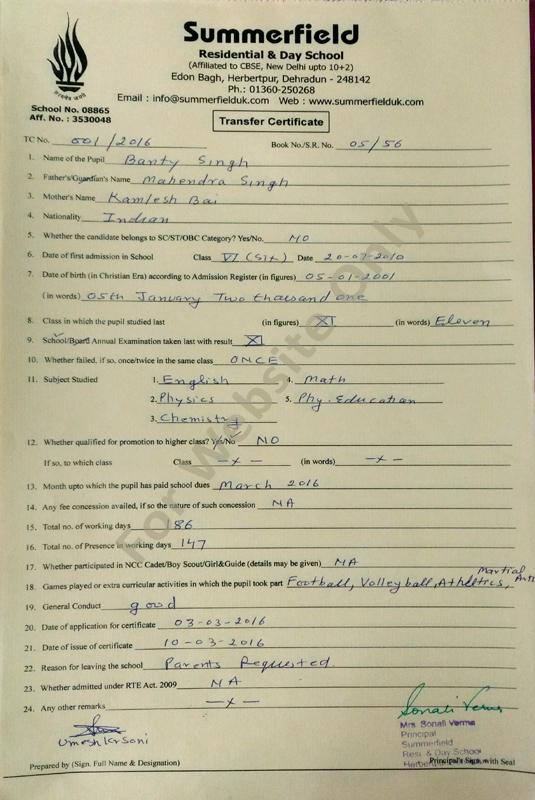 Summerfield
Residential & Day School
(Affiliated to CBSE, New Delhi upto 10+2)
Edon Bagh, Herbertpur, Dehradun - 248142
Ph.: 01360-250268
Email : info@summerfielduk.com Web : www.summerfielduk.com
School No. 08865
Aff. No. : 3530048
Transfer Certificate
TC No. 001/2016 Book No./S.R. No. 05/56
1. Name of the Pupil Banty Singh
2. Father's/Guardian's Name Mahendra Singh
3. Mother's Name Kamlesh Bai
4. Nationality Indian
5. Whether the candidate belongs to SC/ST/OBC Category? Yes/No. NO
6. Date of first admission in School Class VI (Six) Date 20-07-2010
7. Date of birth (in Christian Era) according to Admission Register (in figures) 05-01-2001
(in words) 05th January Two thousand one
8. Class in which the pupil studied last (in figures) XI (in words) Eleven
9. School/Board Annual Examination taken last with result XI
10. Whether failed, if so, once/twice in the same class ONCE
11. Subject Studied 1. English 4. Math
2. Physics 5. Phy. Education
3. Chemistry
12. Whether qualified for promotion to higher class? Yes/No NO
If so, to which class Class -x- (in words) -x-
13. Month upto which the pupil has paid school dues March 2016
14. Any fee concession availed, if so the nature of such concession NA
15. Total no. of working days 186
16. Total no. of Presence in working days 147
17. Whether participated in NCC Cadet/Boy Scout/Girl&Guide (details may be given) NA
18. Games played or extra curricular activities in which the pupil took part Football, Volleyball, Athletics, Martial Arts
19. General Conduct good
20. Date of application for certificate 03-03-2016
21. Date of issue of certificate 10-03-2016
22. Reason for leaving the school Parents Requested.
23. Whether admitted under RTE Act. 2009 NA
24. Any other remarks -x-
Sonali Verma
Mrs. Sonali Verma
Principal
Summerfield
Resi. & Day School
Prepared by (Sign. Full Name & Designation) Principal's Sign. with Seal
For Website Only